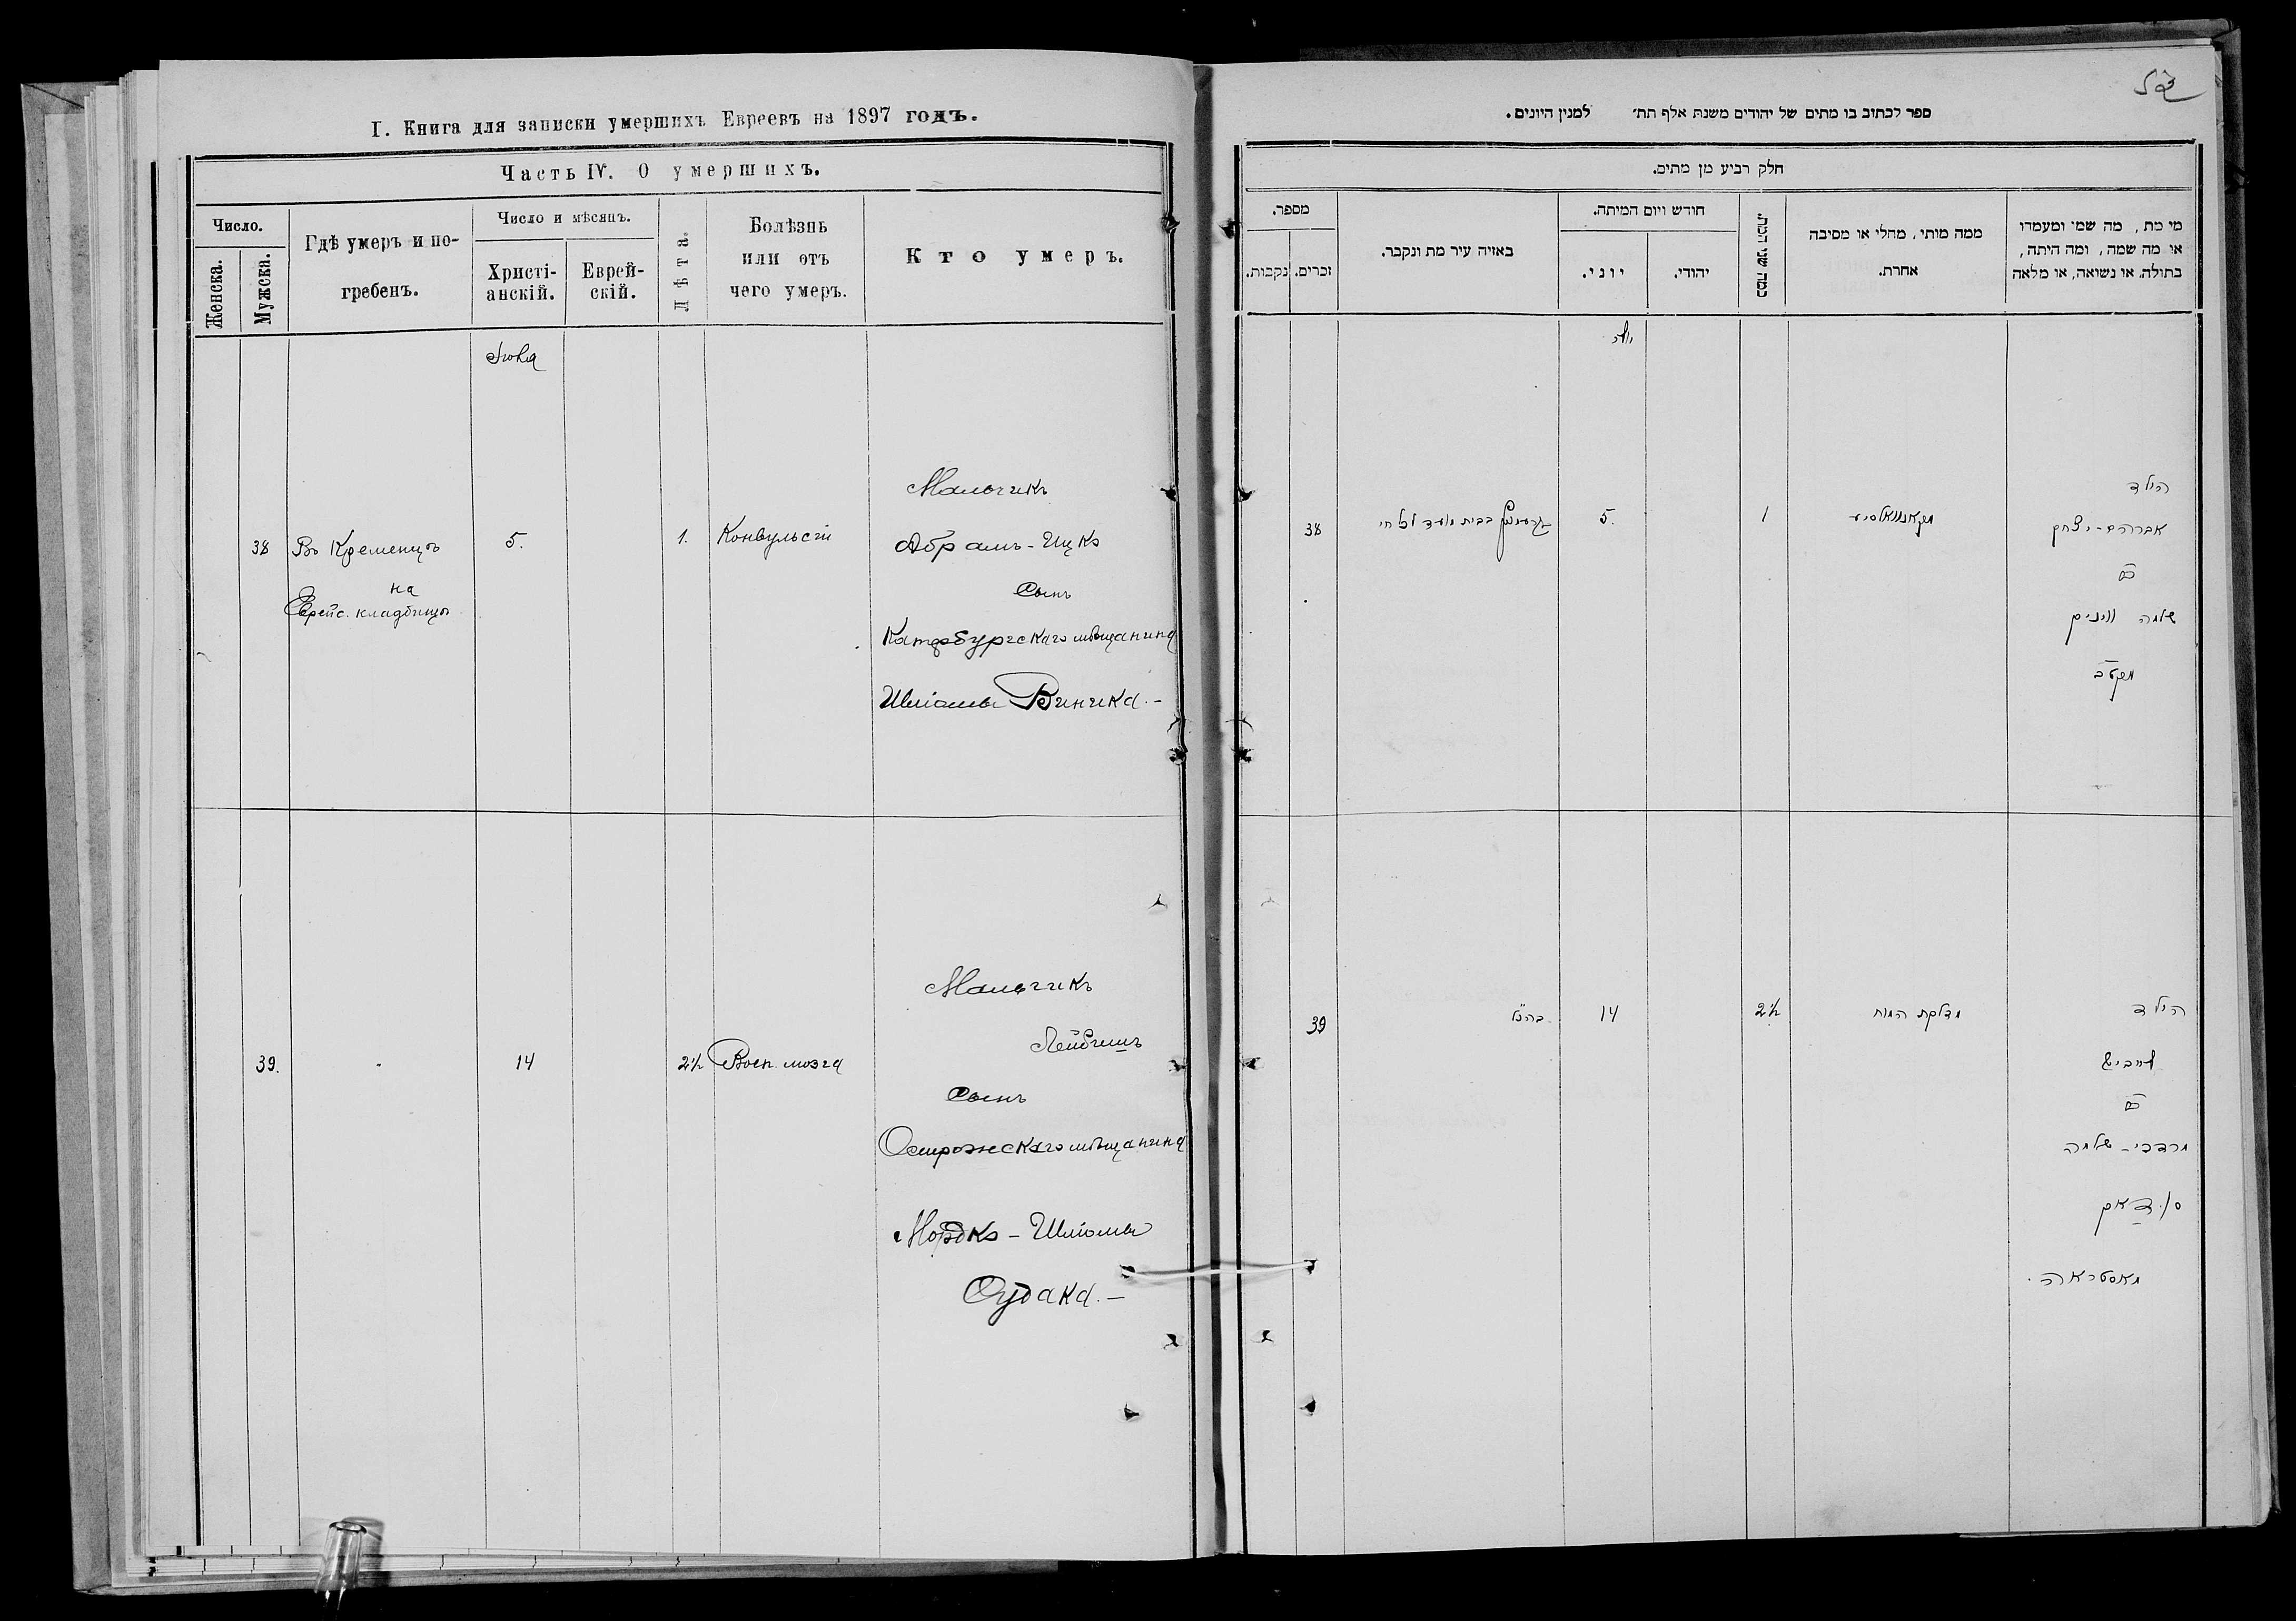 I. Книга для записки умершихъ Евреевъ на 1897 годъ.
Часть IV. О умершихъ.
Число.
Женска.
Мужска.
Гдѣ умеръ и по-
гребенъ.
Число и мѣсяцъ.
Христі-
анскій.
Еврей-
скій.
Лѣта.
Болѣзнь
или отъ
чего умеръ.
Кто умеръ.
38
Въ Кременцѣ
на
Еврейс. кладбищѣ
5.
1.
Конвульсіи
Мальчикъ
Абрамъ-Ицко
сынъ
Катербургскаго мѣщанина
Шліомы Виника.-
39.
14
2½
Восп. мозга
Мальчикъ
Лейбишъ
сынъ
Острожскаго мѣщанина
Мордко-Шліомы
Судака.-
52
ספר לכתוב בו מתים של יהודים משנת אלף תת׳ למנין היונים.
חלק רביע מן מתים.
מספר.
נקבות.
זכרים.
באזיה עיר מת ונקבר.
חודש ויום המיתה.
יוני.
יהודי.
כמה שני חכות.
ממה מותי, מחלי או מסיבה
אחרת.
מי מת, מה שמו ומעמדו
או מה שמה, ומה היתה,
בתולה, או נשואה, או מלאה
38
בבית ועד לכל חי
5.
1
הילד
אברהם-יצחק
שלמה וויניק
39
כהנ״ל
14
2½
מדלקת המוח
הילד
לייביש
מרדכי-שלמה
סודאק
מאסטראה.